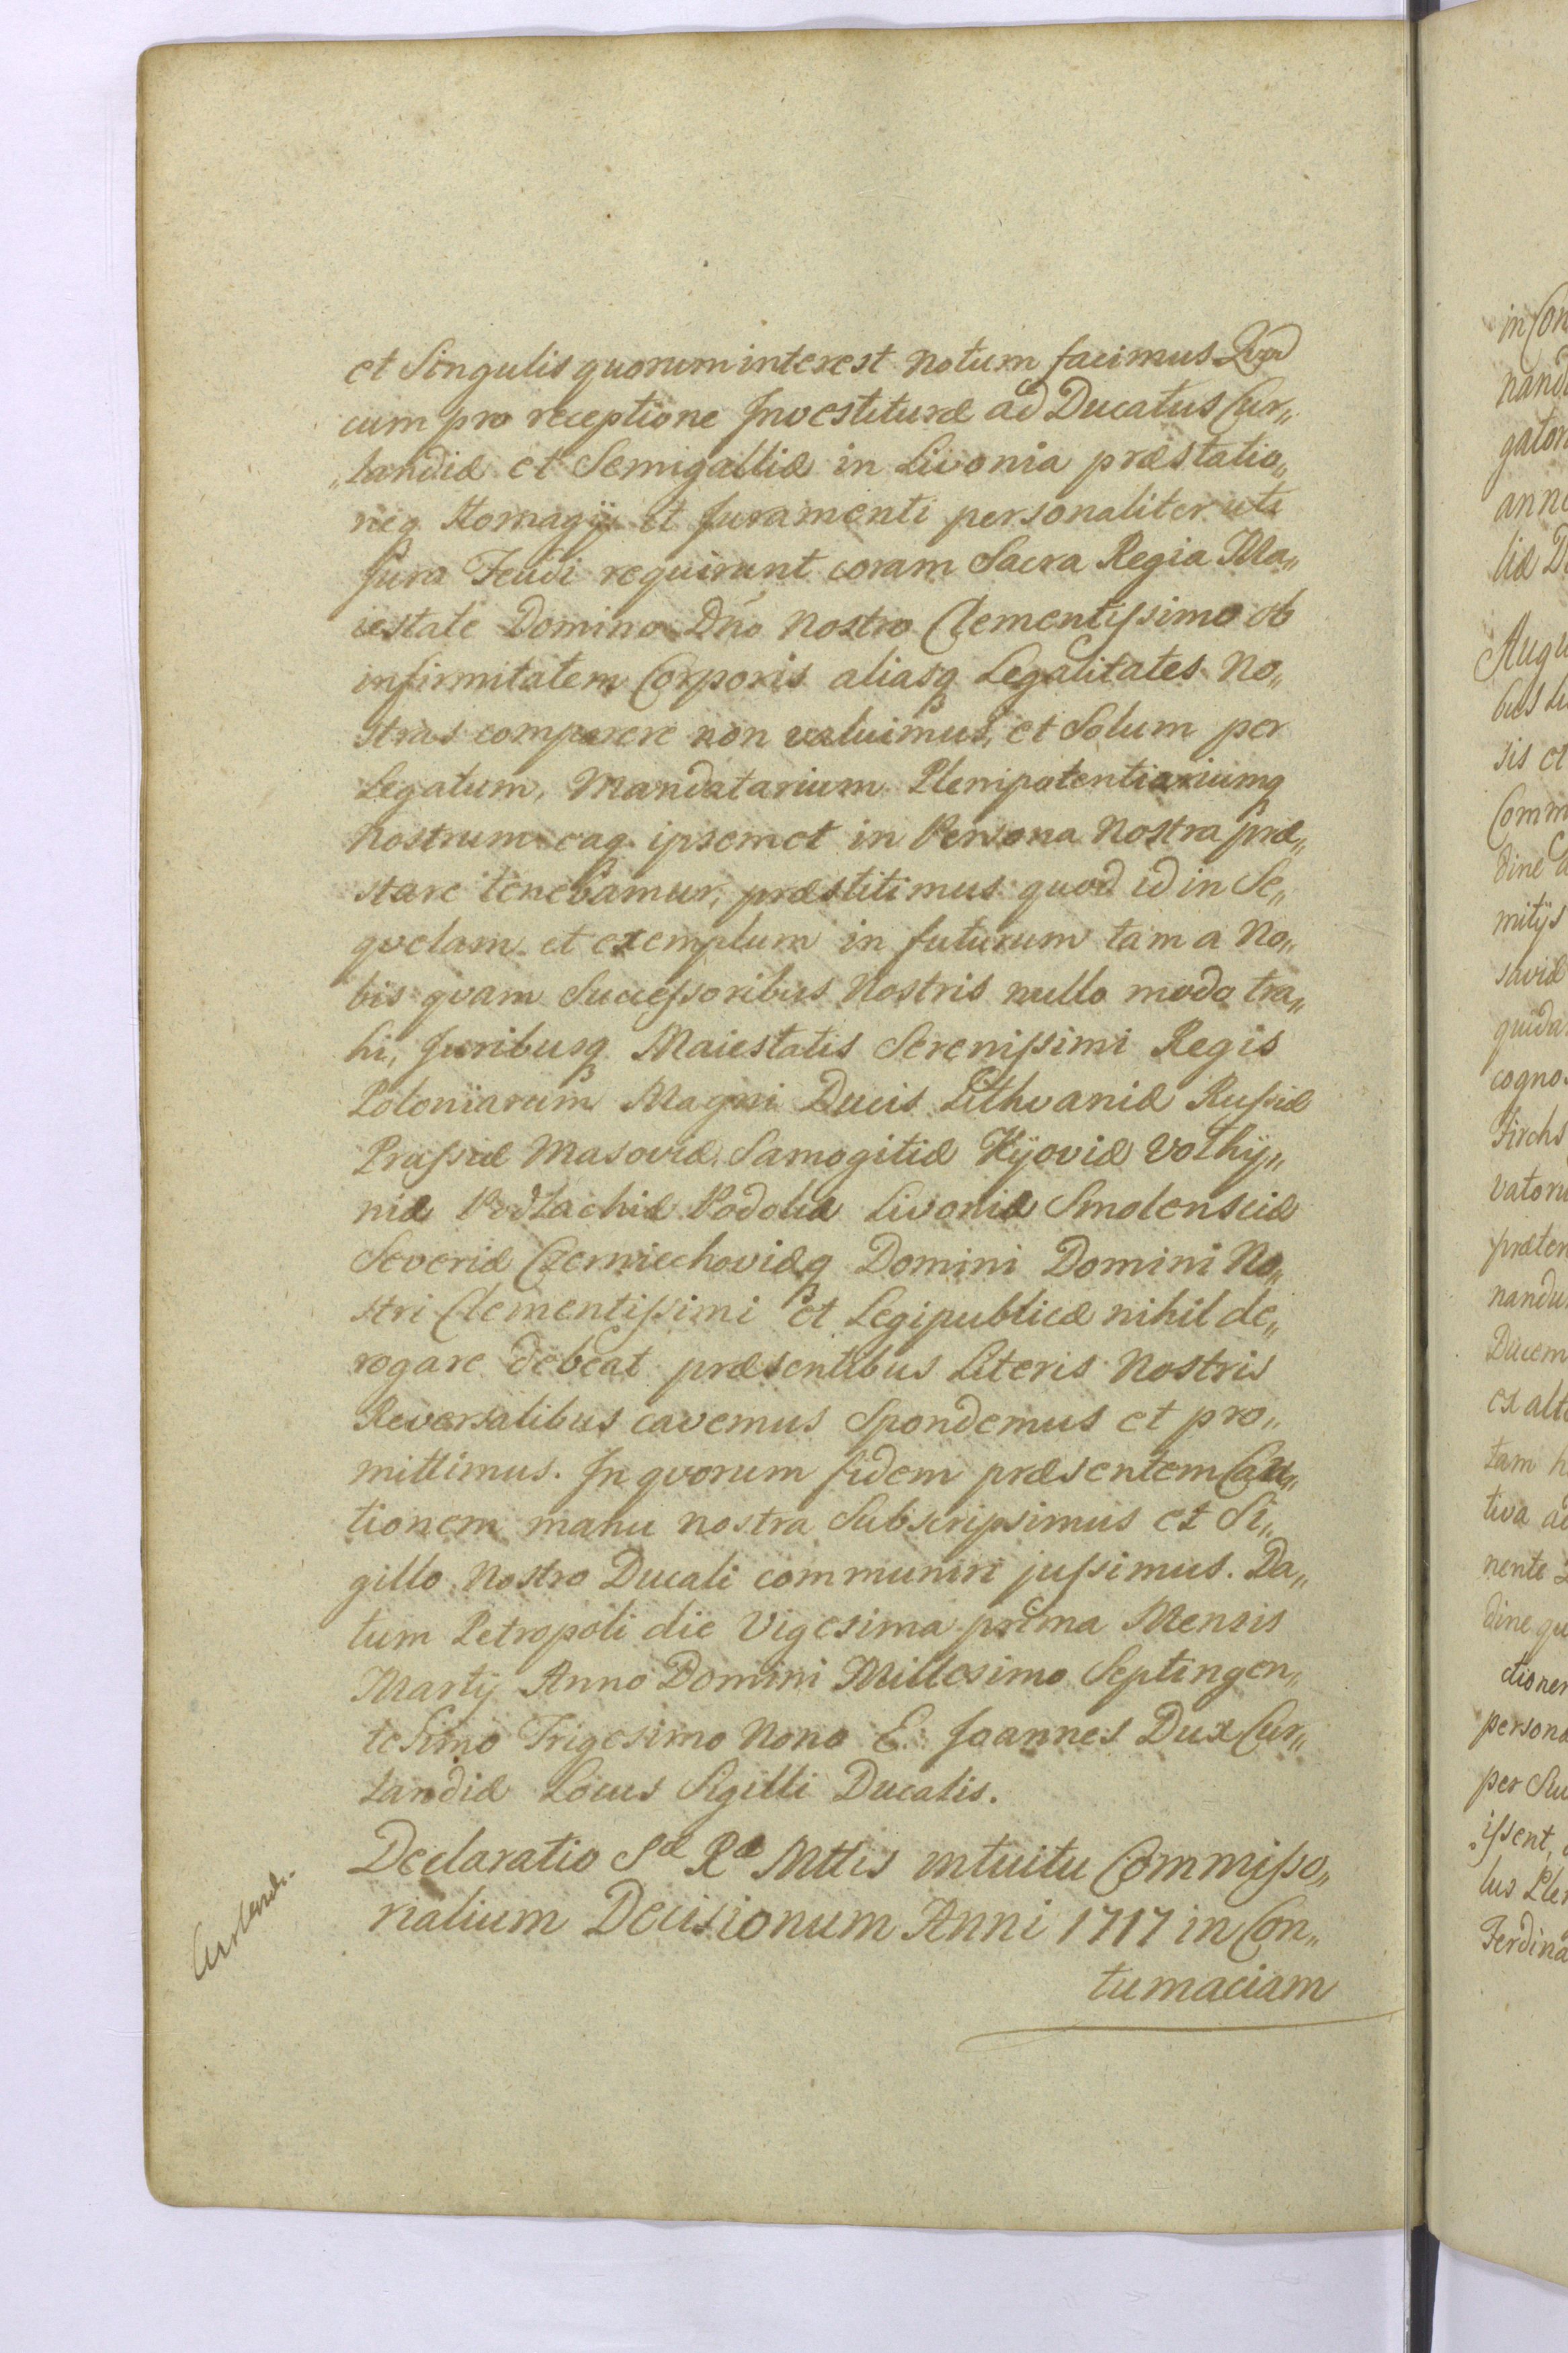 et Singulis quorum interest notum facimus Qvod
cum pro receptione Investituræ ad Ducatus Cur„
„landiæ et Semigalliæ in Livonia præstatio„
neq Homagÿ et Juramenti personaliter uti
Jura Feudi requirunt coram Sacra Regia Ma„
iestate Domino Dno nostro Clementissimo ob
infirmitatem Corporis aliasq Legalitates No„
stras comparere non valuimus, et Solum per
Legatum, Mandatarium Plenipotentiariumq
nostrum eaq ipsemet in Persona Nostra præ„
stare tenebamur, præstitimus quod id in Se„
qvelam et exemplum in futurum tam a No„
bis qvam Successoribus Nostris nullo modo tra„
hi, Juribusq Maiestatis Serenissimi Regis
Poloniarum Magni Ducis Lithvaniæ Russiæ
Prussiæ Masoviæ Samogitiæ Kÿoviæ Volhÿ„
niæ Podlachiæ Podoliæ Livoniæ Smolensciæ
Severiæ Czerniechoviæq Domini Domini No„
stri Clementissimi et Legi publicæ nihil de„
rogare debeat præsentibus Literis Nostris
Reversalibus cavemus Spondemus et pro„
mittimus. In qvorum fidem præsentem Cau„
tionem manu nostra Subscripsimus et Si„
gillo Nostro Ducali communiri jussimus. Da„
tum Petropoli die Vigesima prima Mensis
Martÿ Anno Domini Millesimo Septingen„
tesimo Trigesimo Nono E. Joannes Dux Cur„
landiæ Locus Sigilli Ducalis.
Declaratio Sæ Ræ Mttis intuitu Commisso„
rialium Decisionum Anni 1717 in Con„
tumaciam
Curland.
in Con
nand
gator
anne
liæ D
Augu
bus Li
sis et
Comm
dine
mitÿs
saviæ
quida
cogno
Firchs
vator
præten
nandu
Ducem
ex alt
tam h
tiva ad
nente
dine qu
ctionem
persona
per Su
issent,
lus Ple
Ferdina